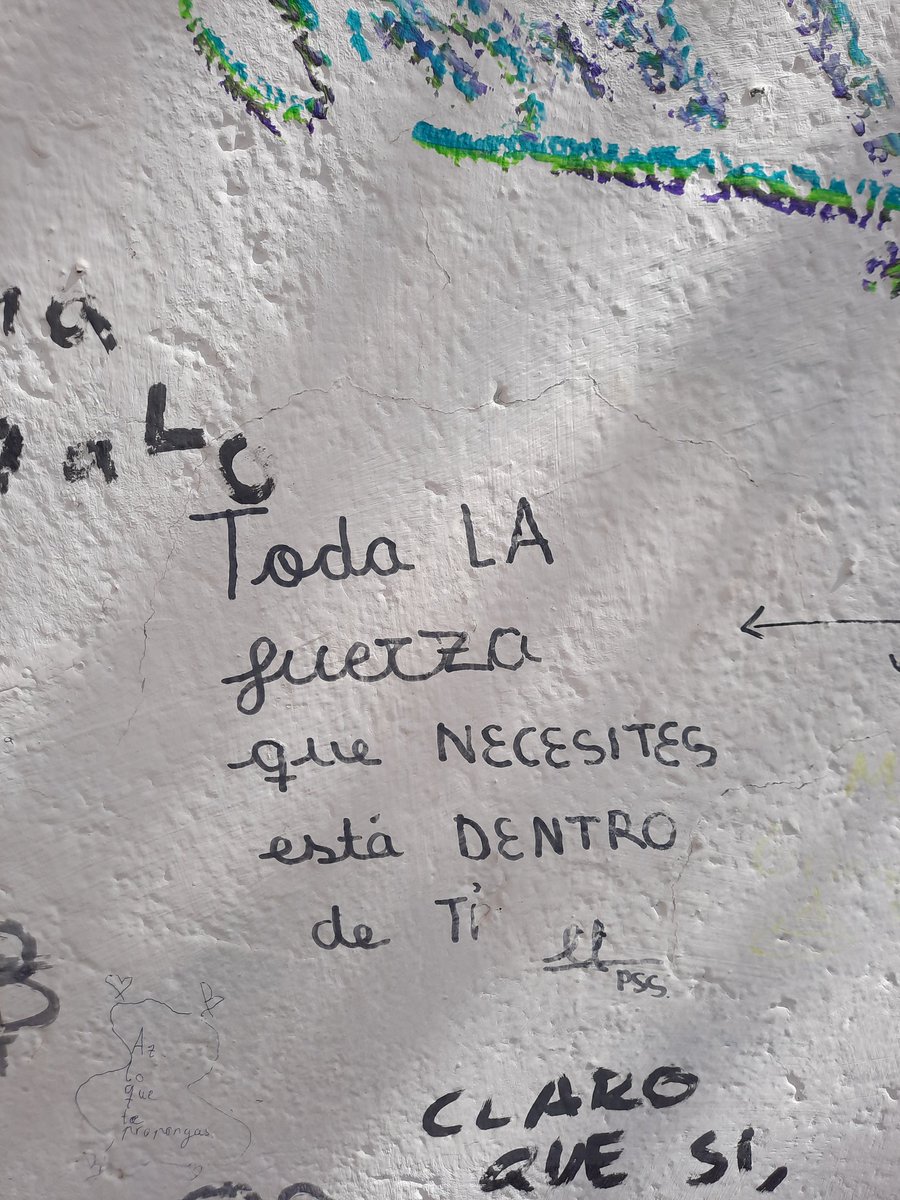 Toda LA
fuerza
que NECESITES
está DENTRO
de Tí
PSS
Az
lo
que
te
propongas
CLARO
QUE SI,